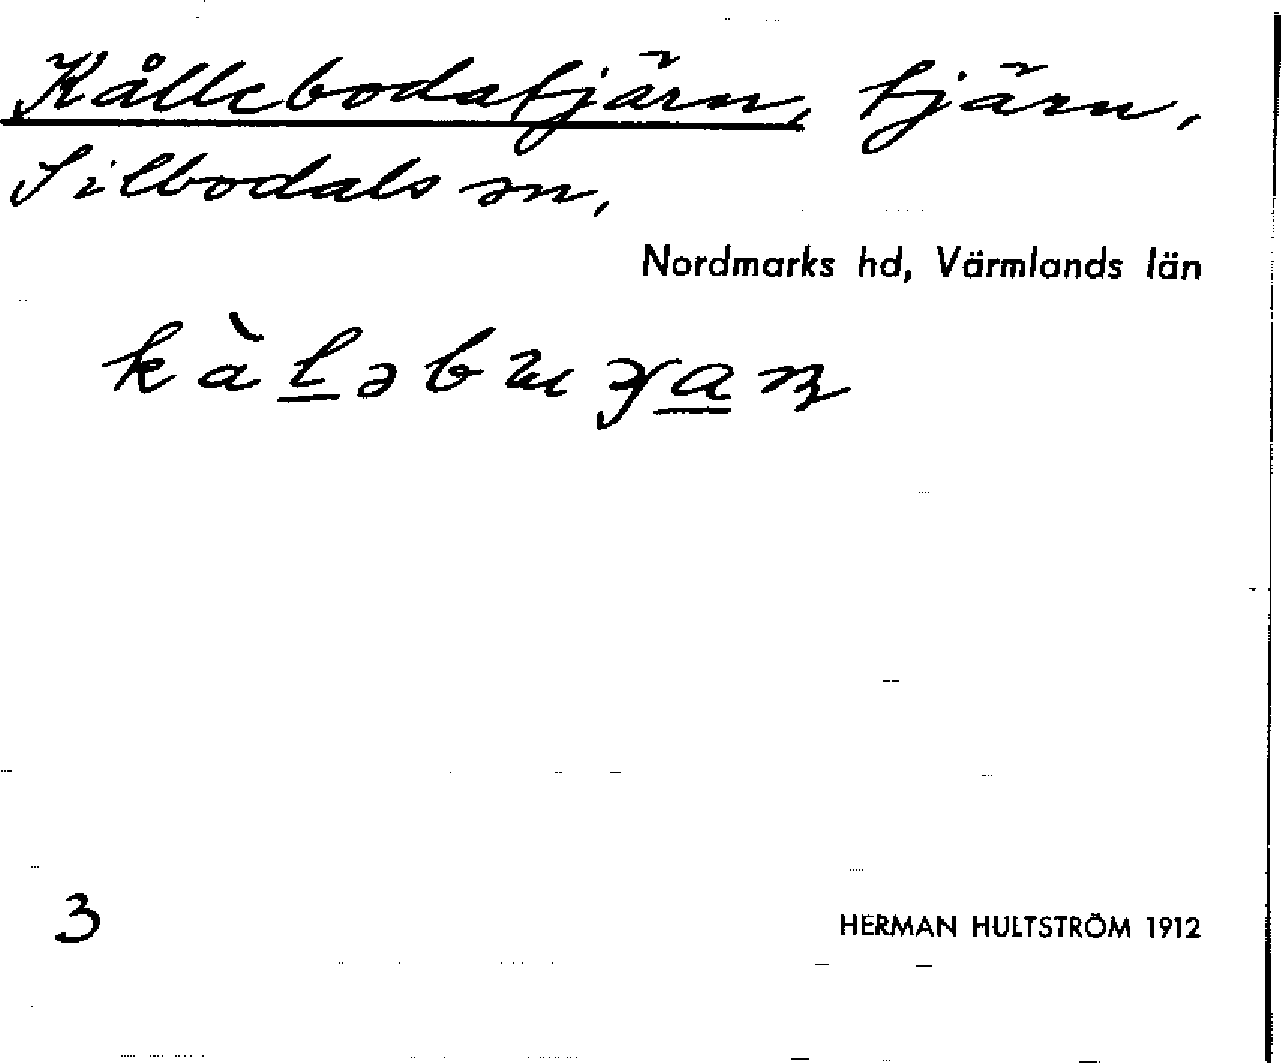 Kållebodatjärn, tjärn,
Silbodals sn,
Nordmarks hd, Värmlands län
3
HERMAN HULTSTRÖM 1912